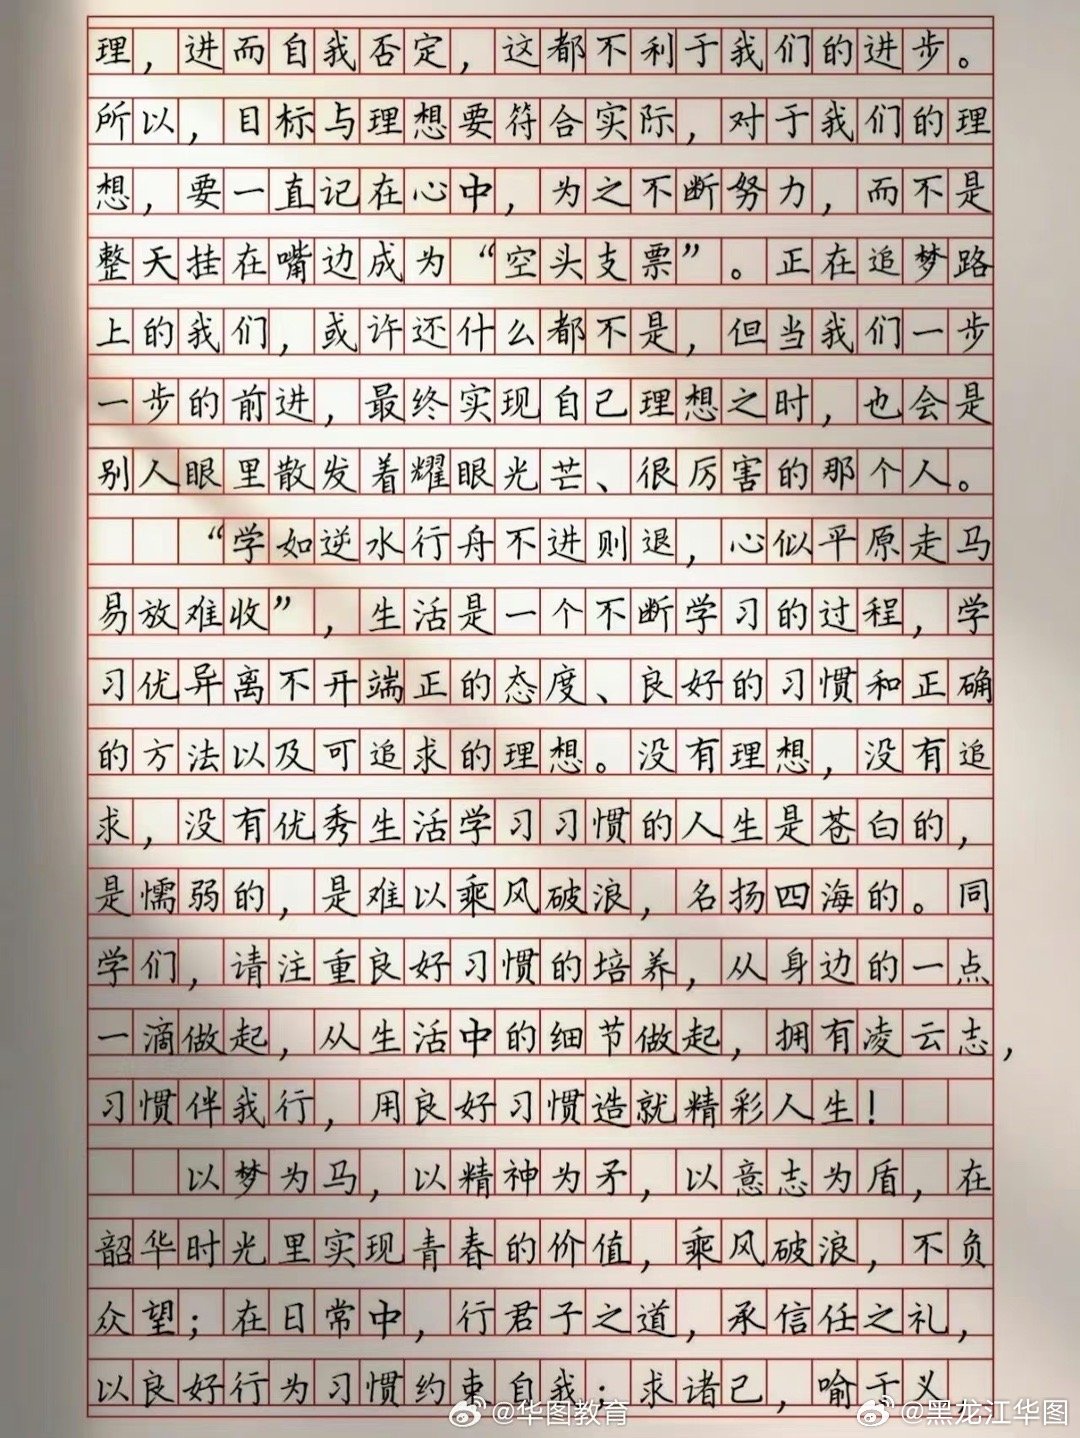 理，进而自我否定，这都不利于我们的进步。
所以，目标与理想要符合实际，对于我们的理
想，要一直记在心中，为之不断努力，而不是
整天挂在嘴边成为“空头支票”。正在追梦路
上的我们，或许还什么都不是，但当我们一步
一步的前进，最终实现自己理想之时，也会是
别人眼里散发着耀眼光芒、很厉害的那个人。
“学如逆水行舟不进则退，心似平原走马
易放难收”，生活是一个不断学习的过程，学
习优异离不开端正的态度、良好的习惯和正确
的方法以及可追求的理想。没有理想，没有追
求，没有优秀生活学习习惯的人生是苍白的，
是懦弱的，是难以乘风破浪，名扬四海的。同
学们，请注重良好习惯的培养，从身边的一点
一滴做起，从生活中的细节做起，拥有凌云志，
习惯伴我行，用良好习惯造就精彩人生！
以梦为马，以精神为矛，以意志为盾，在
韶华时光里实现青春的价值，乘风破浪，不负
众望；在日常中，行君子之道，承信任之礼，
以良好行为习惯约束自我；求诸己，喻于义，
@华图教育
@黑龙江华图